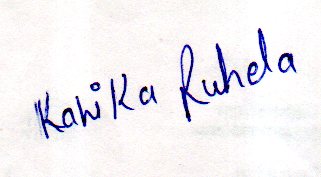 Kanika Ruhela